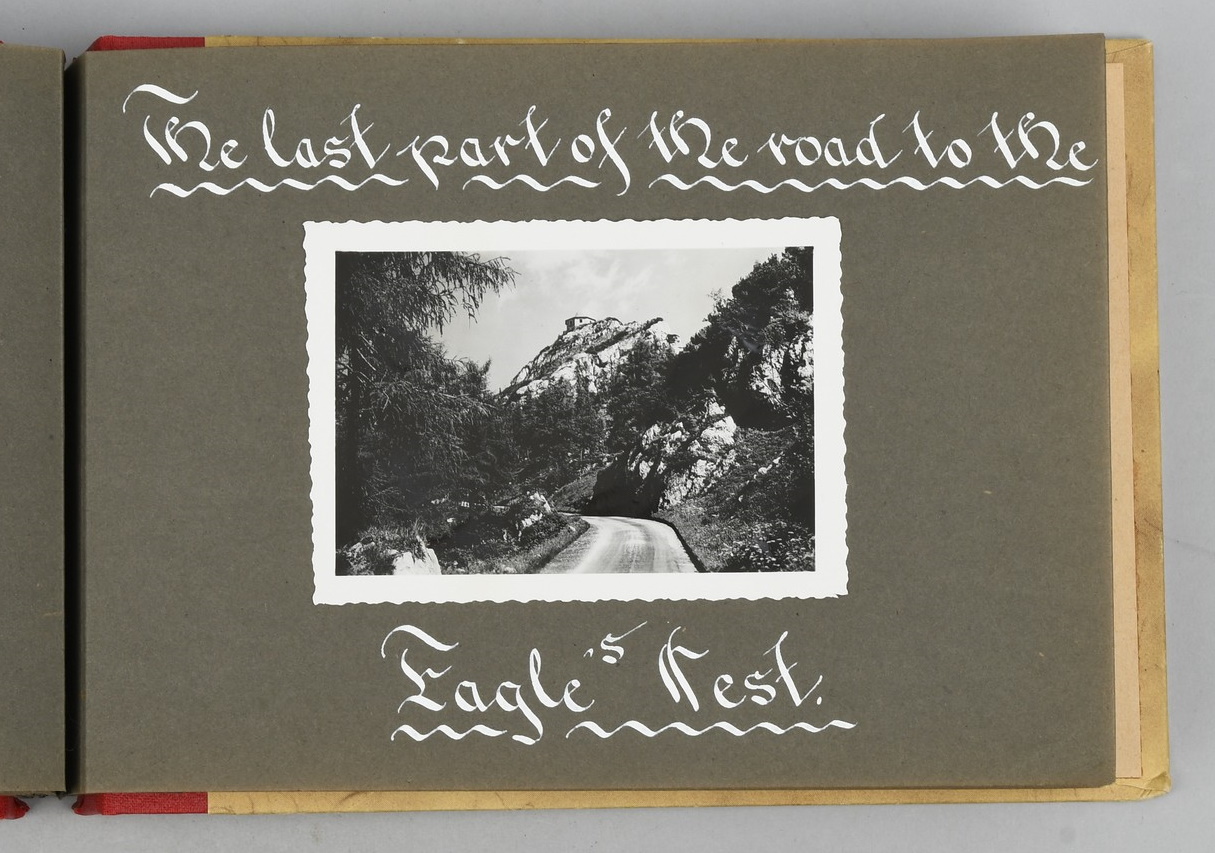 The last part of the road to the
Eagle's Nest.